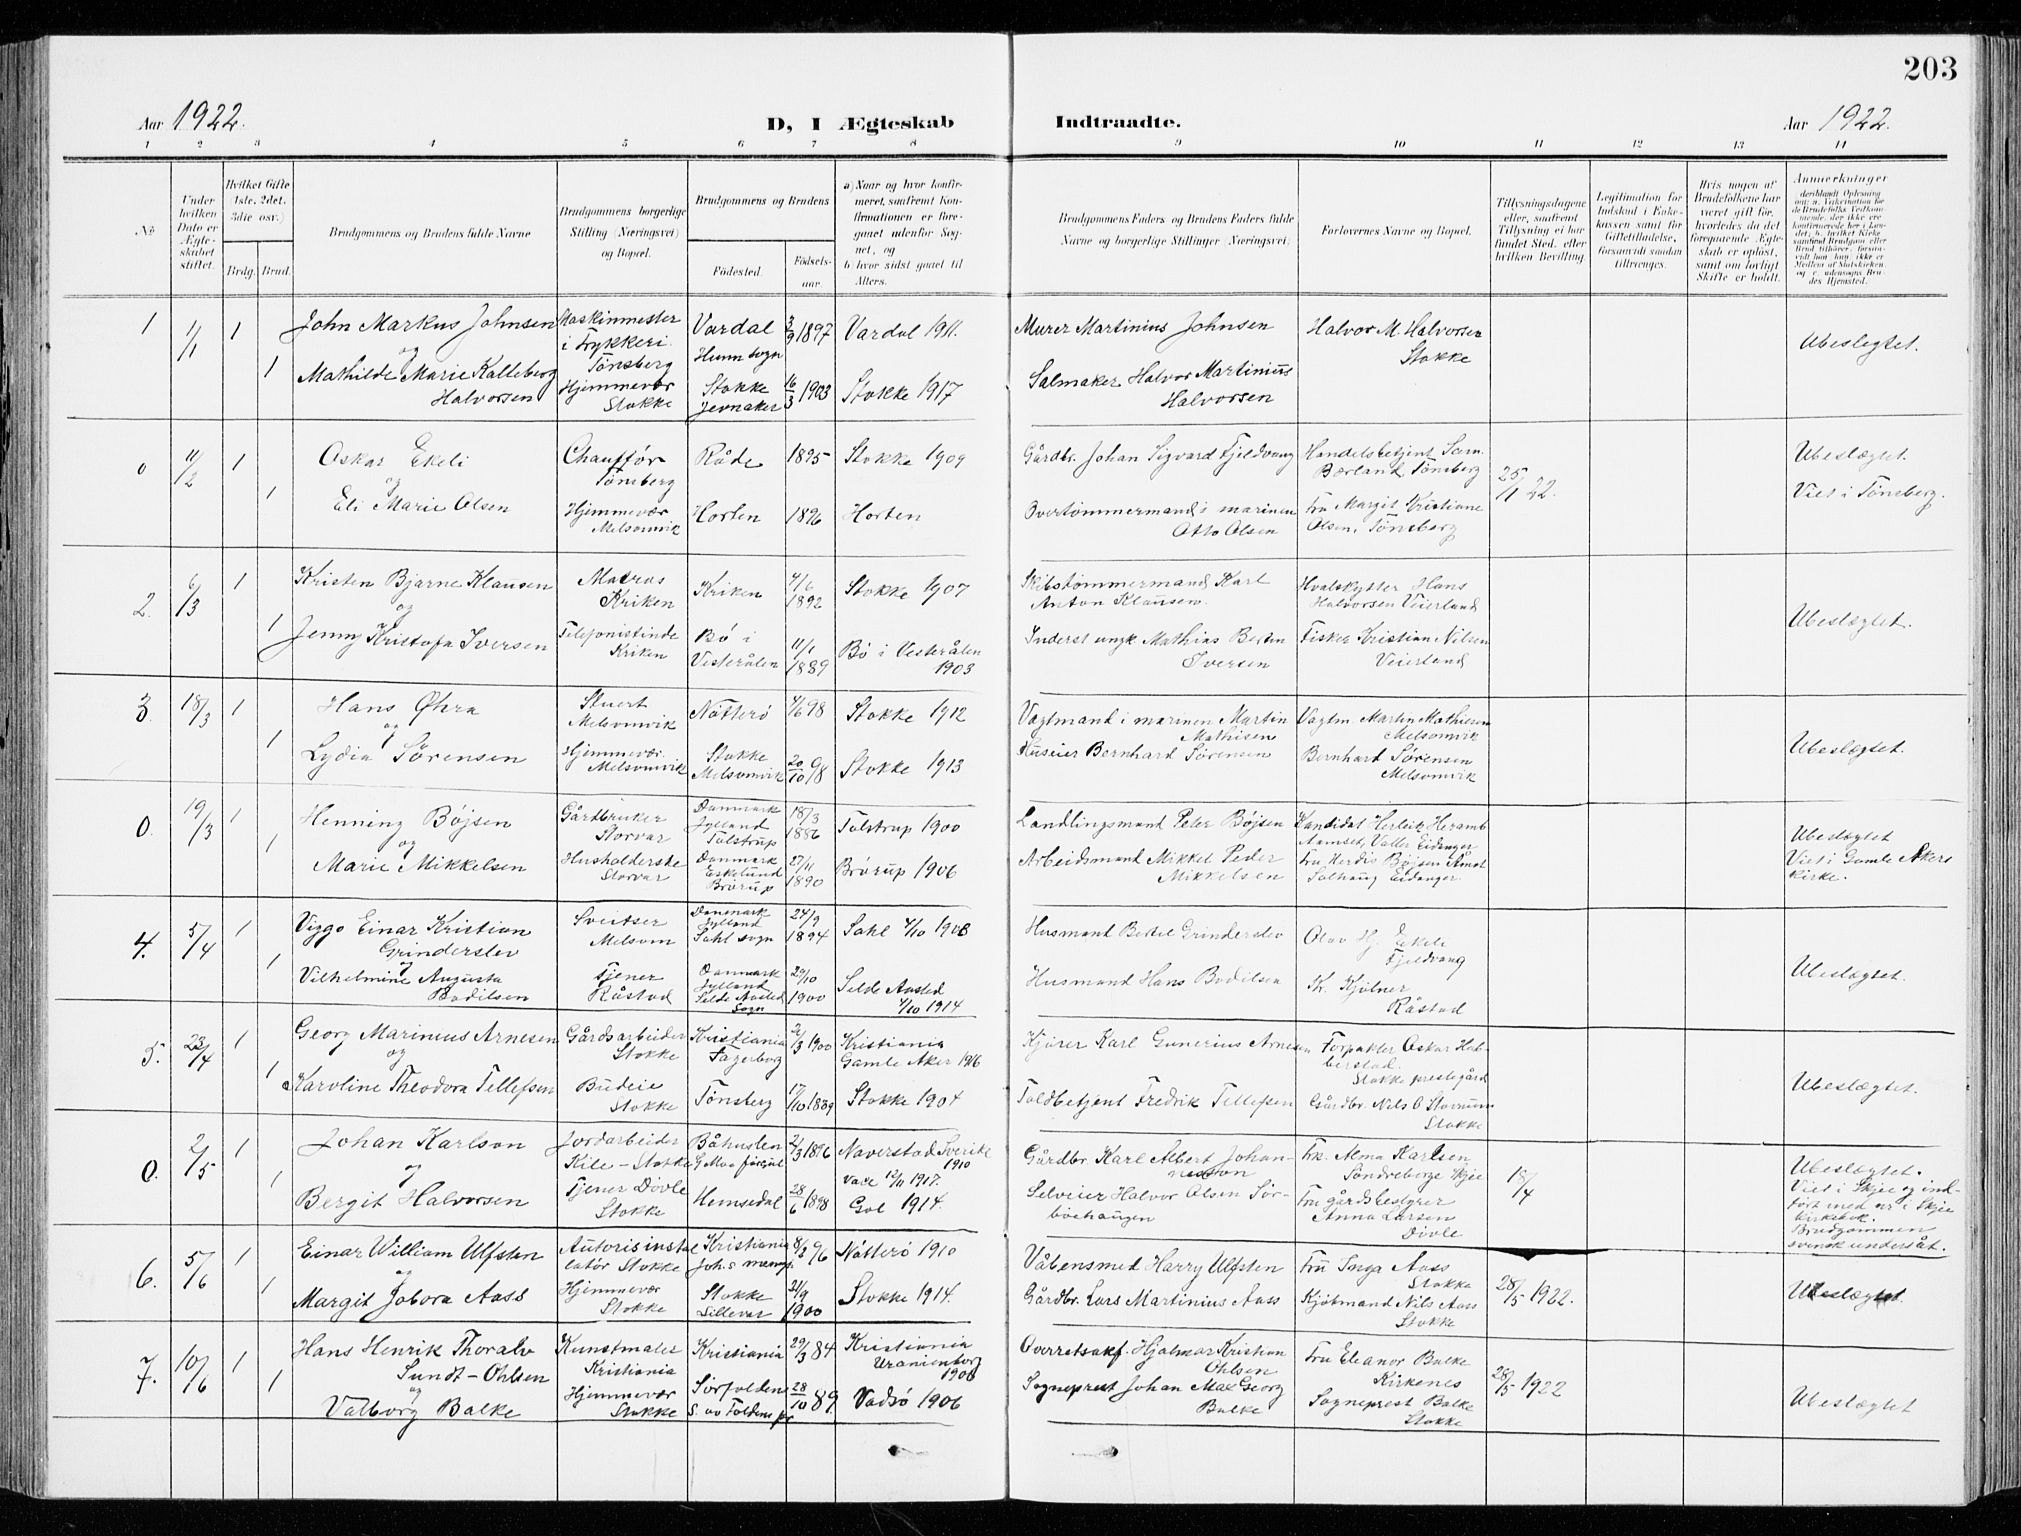 203
Aar 1922.
D, I Ægteskab
Indtraadte.
Aar 1922.
1 2 3 4 5 6 7 8 9 10 11 12 13 14
No
Under hvilken Dato er Ægteskabet stiftet.
Hvilket Gifte (1ste, 2det, 3die osv.)
Brdg. Brud.
Brudgommens og Brudens fulde Navne
Brudgommens borgerlige Stilling (Næringsvei) og Bopæl.
Brudgommens og Brudens
Födested.
Födselsaar.
a) Naar og hvor konfirmeret, saafremt Konfirmationen er foregaaet udenfor Sognet, og
b) hvor sidst gaaet til Alters.
Brudgommens Faders og Brudens Faders fulde Navne og borgerlige Stillinger (Næringsvei)
Forlovernes Navne og Bopæl.
Tillysningsdagene eller, saafremt Tillysning ei har fundet Sted, efter hvilken Bevilling.
Legitimation for Indskud i Enkekassen samt for Giftetilladelse, forsaavidt saadan tiltrænges.
Hvis nogen af Brudefolkene har været gift för, hvorledes da det foregaaende Ægteskab er oplöst, samt om lovligt Skifte er holdt.
Anmerkninger
1 1/1 1 John Markus Johnsen Maskinmester i Trykkeri Tønsberg Vardal Hunn sogn 3/9 1897 Vardal 1911. Murer Martinius Johnsen Halvor M. Halvorsen Stokke Ubeslegtet.
og
1 Mathilde Marie Kalleberg Halvorsen Hjemmevær Stokke Stokke Jevnaker 16/3 1903 Stokke 1917 Salmaker Halvor Martinius Halvorsen
0 11/2 1 Oskar Ekeli Chauffør Tønsberg Råde 1895 Stokke 1909 Gårdbr. Johan Sigvard Fjeldvang Handelsbetjent Sam. Børland Tønsberg 25/1 22. Ubeslægtet.
og
1 Eli Marie Olsen Hjemmevær Melsomvik Horten 1896 Horten Overtømmermand i marinen Otto Olsen Fru Margit Kristiane Olsen, Tønsberg Viet i Tønsberg.
2. 6/3 1 Kristen Bjarne Klausen Matros Kriken Kriken 4/6 1892 Stokke 1907 Skibstømmermand Karl Anton Klausen. Hvalskytter Hans Halvorsen Veierland Ubeslægtet.
og
1 Jenny Kristofa Iversen Telefonistinde Kriken Bø i Vesterålen 11/1 1889 Bø i Vesterålen 1903 Inderst ungk Mathias Iversen Fisker Kristian Nilsen Veierland
3. 18/3 1 Hans Øhra Stuert Melsomvik Nøtterø 4/6 98 Stokke 1912 Vagtmand i marinen Martin Mathisen Vagtm. Martin Mathisen Melsomvik
og
1 Lydia Sørensen Hjemmevær. Melsomvik Stokke Melsomvik 20/10 98 Stokke 1913 Huseier Bernhard Sørensen Bernhard Sørensen Melsomvik Ubeslægtet.
0. 19/3 1 Henning Bøjsen Gårdbruker Storvar Danmark Jylland Tolstrup 18/3 1886 Tolstrup 1900 Landlingsmand Peter Bøjsen Kandidat Herleik Heramb Valler Eidanger Ubeslægtet
og
1 Marie Mikkelsen Husholderske Storvar Danmark Eskelund Brørup 27/11 1890 Brørup 1906 Arbeidsmand Mikkel Peder Mikkelsen Fru Herdis Bøjsen Solhaug Eidanger Viet i Gamle Akers kirke.
4. 5/4 1 Viggo Einar Kristian Grinderslev Sveitser Melsom Danmark Jylland Sahl sogn 24/9 1894 Sahl 4/10 1908 Husmand Bertel Grinderslev Olav Hj. Ekeli Fjeldvang
og
1 Vilhelmine Augusta Bodilsen Tjener Råstad Danmark Jylland Selde Aasted Sogn 20/10 1900 Selde Aasted 4/10 1914 Husmand Hans Bodilsen Th. Kjølner Råstad Ubeslægtet.
5. 23/4 1 Georg Marinius Arnesen Gårdsarbeider Stokke Kristiania Fagerborg 2/3 1900 Kristiania Gamle Aker 1916 Kjører Karl Gunerius Arnesen Forpakter Oskar Halberstad. Stokke prestegård
og
1 Karoline Theodora Tellefsen Budeie Stokke Tønsberg 17/10 1889 Stokke 1904 Toldbetjent Fredrik Tellefsen Gårdbr. Nils O Stavnum Stokke Ubeslægtet.
0. 2/5 1 Johan Karlson Jordarbeider Kile - Stokke Båhuslen 2/3 1896 Naverstad Sverike 1910 Gårdbr. Karl Albert Johannesson Frk. Alma Karlsen Søndreborge Skjee 18/4 Ubeslægtet.
og
1 Bergit Halvorsen Tjener Døvle Stokke Hemsedal 28/6 1898 Vacc 12/11 1917. Gol 1914. Selveier Halvor Olsen Sørbøehaugen Fru gårdsbestyrer Anna Larsen Døvle Viet i Skjee og indført med nr i Skjee Kirkebok. Brudgommen svensk undersåt.
6. 5/6 1 Einar William Ulfsten Autoris instalatør Stokke Kristiania Joh.s menigh. 8/2 96 Nøtterø 1910 Våbensmed Harry Ulfsten Fru Inga Aass Stokke 28/5 1922. Ubeslægtet
og
1 Margit Jobora Aass Hjemmevær Stokke Stokke Lillevar 21/9 1900 Stokke 1914. Gårdbr. Lars Martinius Aass Kjøbmand Nils Aass Stokke
7. 10/6 1 Hans Henrik Thoralv Sundt-Ohlsen Kunstmaler Kristiania Kristiania 29/3 84 Kristiania Uranienborg 1900 Overretssakf. Hjalmar Kristian Ohlsen Fru Eleanor Balke Kirkenes 28/5 1922
og
1 Valborg Balke Hjemmevær Stokke Sørfolden 28/10 89 Vadsø 1906 Sogneprest Johan Max Georg Balke Sogneprest Balke Stokke Ubeslægtet